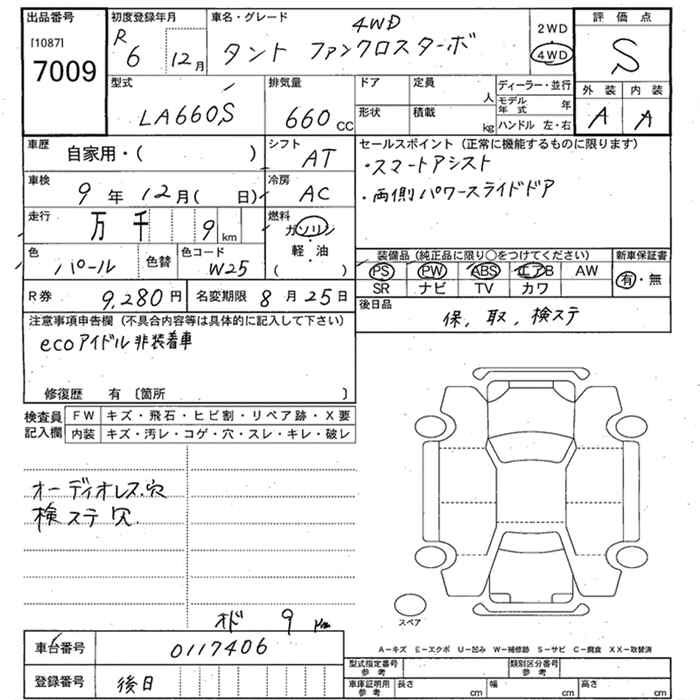 出品番号
[1087]
7009
初度登録年月
R 6 12月
車名・グレード
4WD
タント ファンクロスターボ
2WD
4WD
評価点
S
外装 内装
A A
型式
LA660S
排気量
660 CC
ドア
定員
人
形状
積載
kg
ディーラー・並行
モデル年式 年
ハンドル 左・右
車歴
自家用・( )
シフト
AT
車検
9年12月( 日)
冷房
AC
走行
万 千 9 km
燃料
ガソリン
軽・油
( )
色
パール
色替
色コード
W25
セールスポイント (正常に機能するものに限ります)
・スマートアシスト
・両側パワースライドドア
装備品 (純正品に限り○をつけてください)
PS PW ABS エアB AW
SR ナビ TV カワ
新車保証書
有・無
R券 9,280円
名変期限 8月25日
後日品
保、取、検ステ
注意事項申告欄 (不具合内容等は具体的に記入して下さい)
ecoアイドル非装着車
修復歴 有〔箇所 〕
検査員記入欄
FW キズ・飛石・ヒビ割・リペア跡・X要
内装 キズ・汚レ・コゲ・穴・スレ・キレ・破レ
オーディオレス穴
検ステ穴
オド 9 km
スペア
A−キズ E−エクボ U−凹み W−補修跡 S−サビ C−腐食 XX−取替済
車台番号 0117406
登録番号 後日
型式指定番号 参考
類別区分番号 参考
車庫証明用 参考
長さ cm 幅 cm 高さ cm